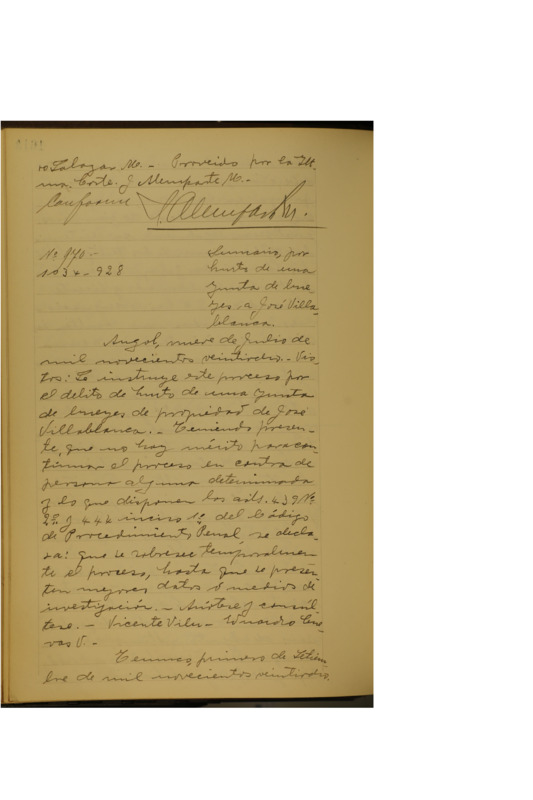 ro Salazar M. - Proveido por la Ilt.
ma. Corte. J. Alemparte M. -
Conforme J. Alemparte M.
No. 970 -
1034 - 928
Sumario, por
hurto de una
yunta de bue-
yes a José Villa-
blanca.
Angol, nueve de Julio de
mil novecientos veintiocho. - Vis-
tos: Se instruye este proceso por
el delito de hurto de una yunta
de bueyes de propiedad de José
Villablanca. - Teniendo presen-
te, que no hay mérito para con-
tinuar el proceso en contra de
persona alguna determinada
y lo que disponen los arts. 439 No.
2o. y 444 inciso 1o. del Código
de Procedimiento Penal, se decla-
ra: que se sobresee temporalmen-
te el proceso, hasta que se presen-
ten mejores datos o medios de
investigación. - Anótese y consúl-
tese. - Vicente Vilu - Eduardo Cue-
vas V. -
Temuco, primero de Setiem-
bre de mil novecientos veintiocho.